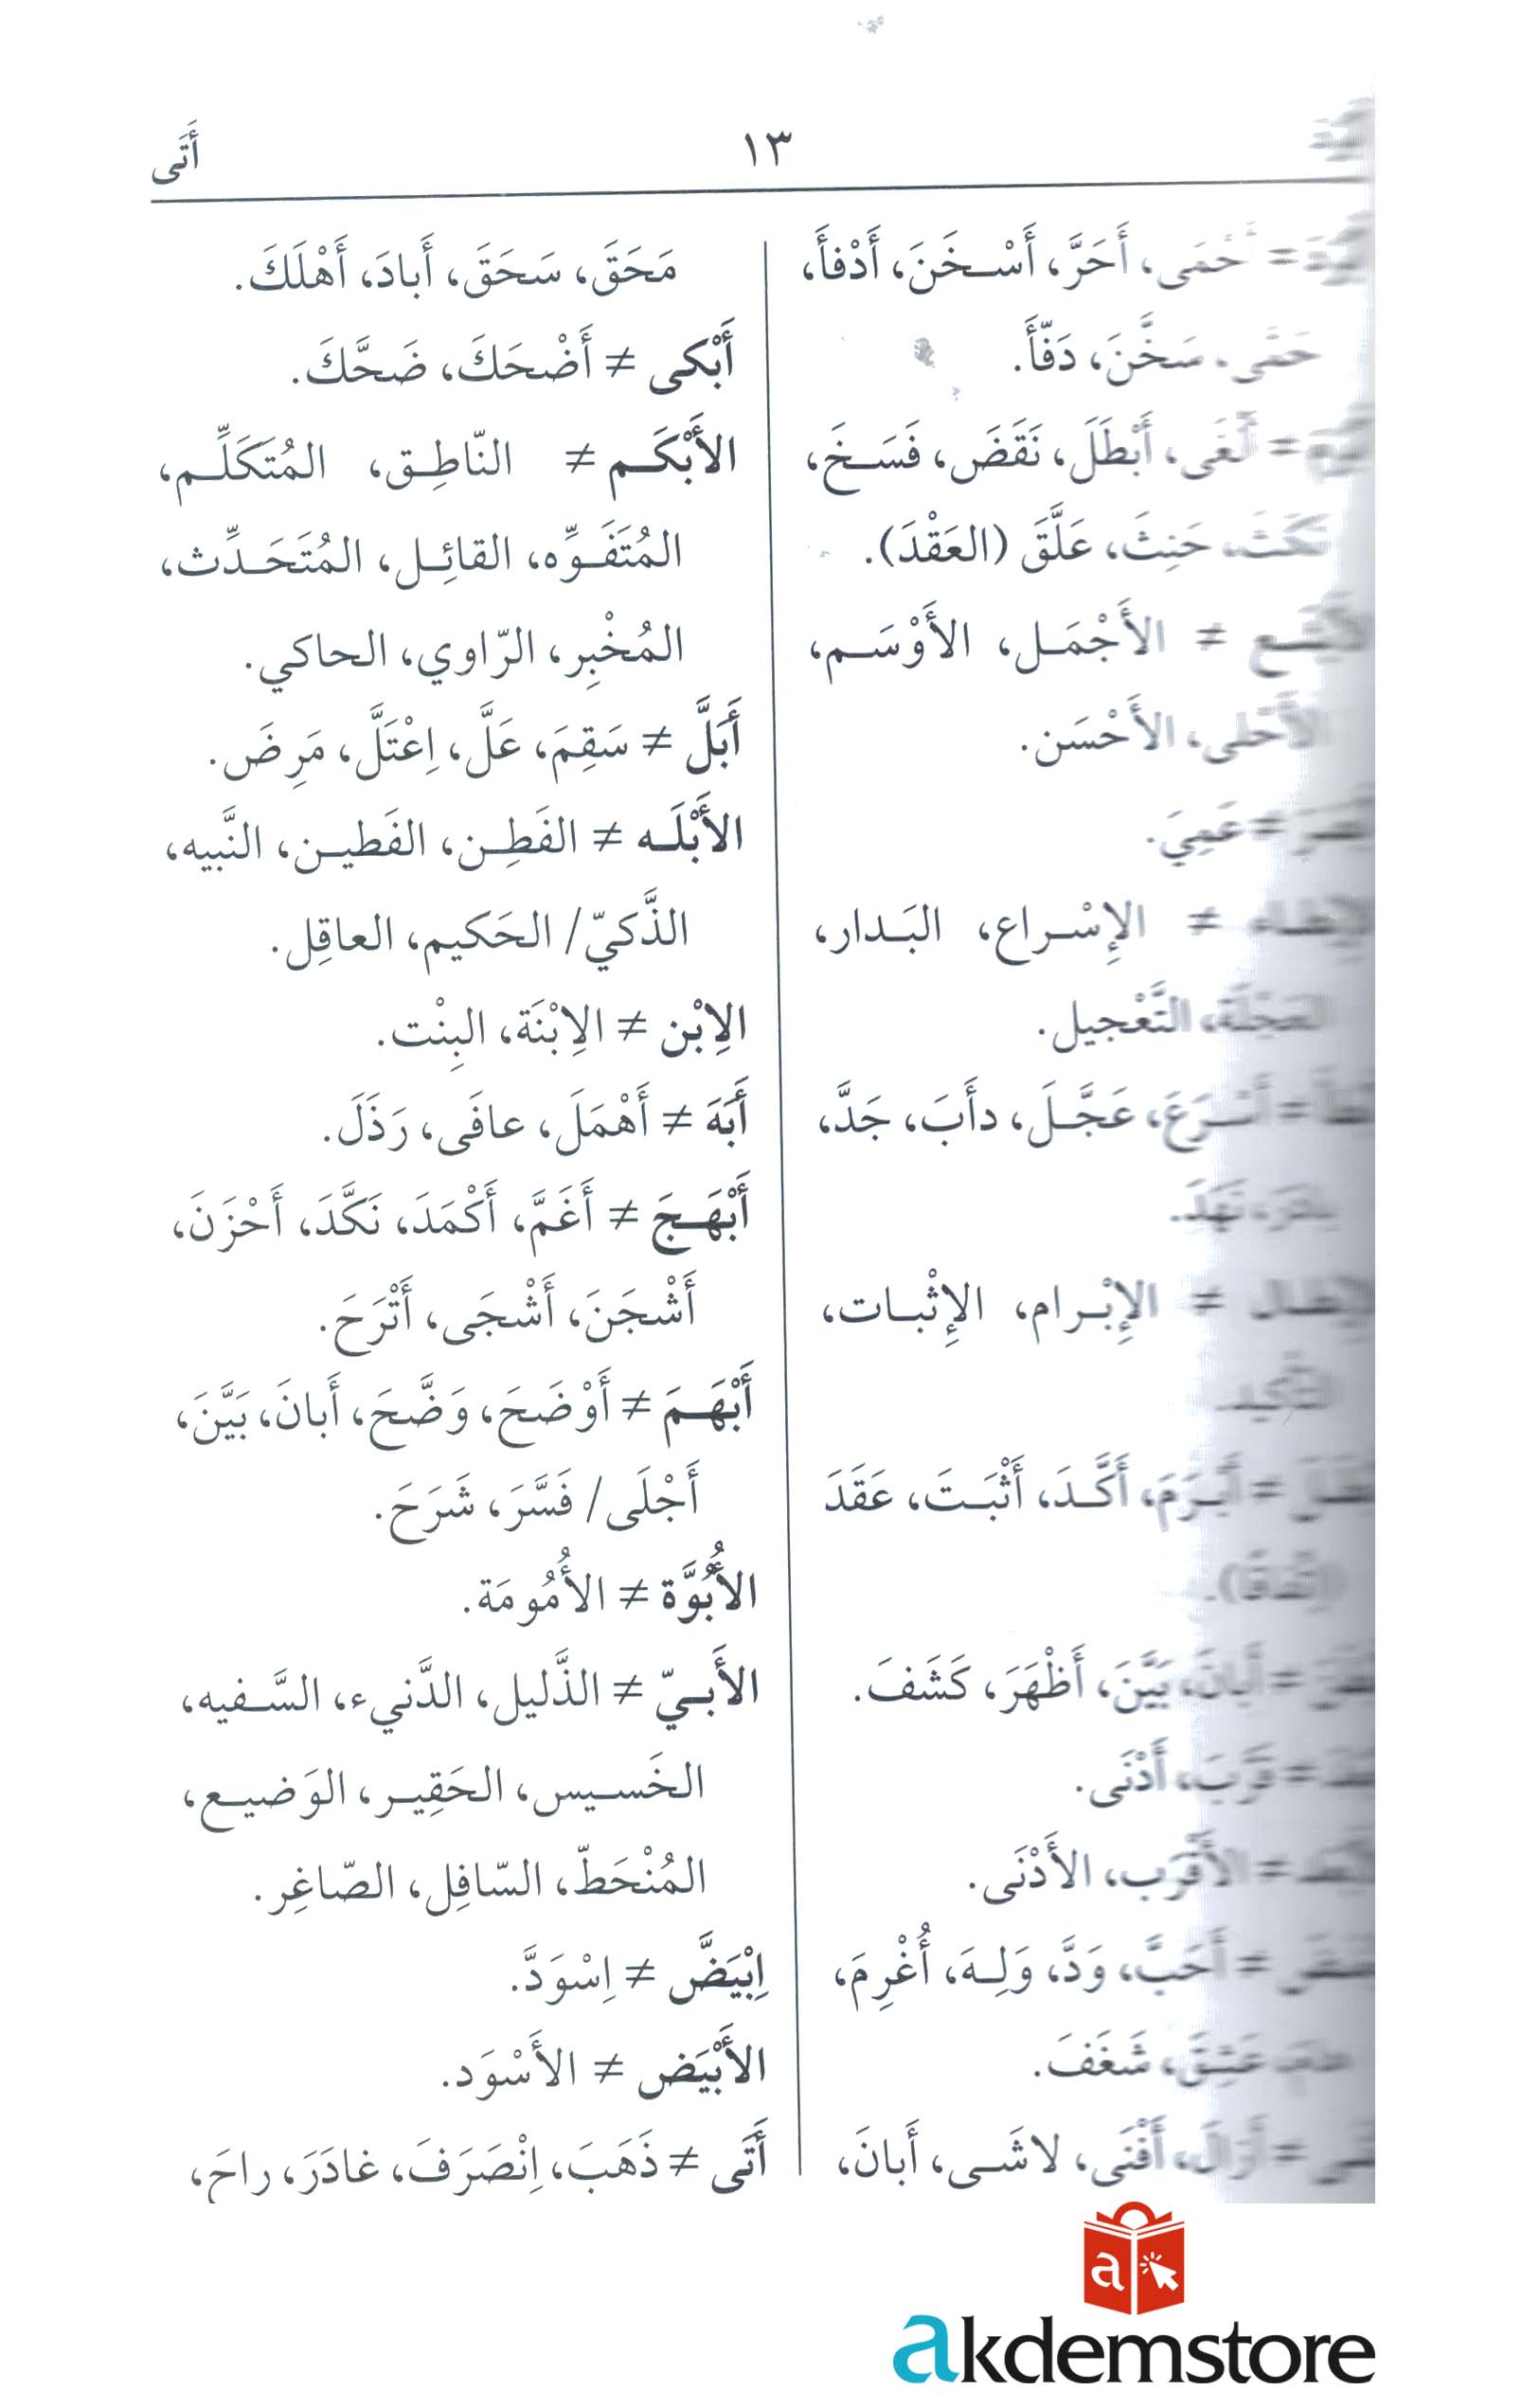 ١٣
أَتَى
أَحَرَّ، أَسْخَنَ، أَدْفأَ،
سَخَّنَ، دَفّأَ.
≠ أَلْغَى، أَبْطَلَ، نَقَضَ، فَسَخَ،
نَكَثَ، حَنِثَ، عَلَّقَ (العَقْدَ).
≠ الأَجْمَل، الأَوْسَم،
الأَحْلى، الأَحْسَن.
≠ عَمِيَ.
≠ الإِسْراع، البَدار،
العَجْلَة، التَّعْجيل.
≠ أَسْرَعَ، عَجَّلَ، دأَبَ، جَدَّ،
≠ الإِبْرام، الإِثْبات،
≠ أَبْرَمَ، أَكَّدَ، أَثْبَتَ، عَقَدَ
≠ أَبانَ، بَيَّنَ، أَظْهَرَ، كَشَفَ.
≠ قَرَّبَ، أَدْنَى.
≠ الأَقْرَب، الأَدْنَى.
≠ أَحَبَّ، وَدَّ، وَلِهَ، أُغْرِمَ،
عَشِقَ، شَغَفَ.
≠ أَزالَ، أَفْنَى، لاشَى، أَبانَ،
مَحَقَ، سَحَقَ، أَبادَ، أَهْلَكَ.
أَبْكى ≠ أَضْحَكَ، ضَحَّكَ.
الأَبْكَم ≠ النّاطِق، المُتَكَلِّم،
المُتَفَوِّه، القائِل، المُتَحَدِّث،
المُخْبِر، الرّاوي، الحاكي.
أَبَلَّ ≠ سَقِمَ، عَلَّ، اِعْتَلَّ، مَرِضَ.
الأَبْلَه ≠ الفَطِن، الفَطين، النَّبيه،
الذَّكيّ/ الحَكيم، العاقِل.
الاِبْن ≠ الاِبْنَة، البِنْت.
أَبَهَ ≠ أَهْمَلَ، عافَى، رَذَلَ.
أَبْهَجَ ≠ أَغَمَّ، أَكْمَدَ، نَكَّدَ، أَحْزَنَ،
أَشْجَنَ، أَشْجَى، أَتْرَحَ.
أَبْهَمَ ≠ أَوْضَحَ، وَضَّحَ، أَبانَ، بَيَّنَ،
أَجْلَى/ فَسَّرَ، شَرَحَ.
الأُبُوَّة ≠ الأُمُومَة.
الأَبيّ ≠ الذَّليل، الدَّنيء، السَّفيه،
الخَسيس، الحَقِير، الوَضيع،
المُنْحَطّ، السّافِل، الصّاغِر.
اِبْيَضَّ ≠ اِسْوَدَّ.
الأَبْيَض ≠ الأَسْوَد.
أَتَى ≠ ذَهَبَ، اِنْصَرَفَ، غادَرَ، راحَ،
a
akdemstore